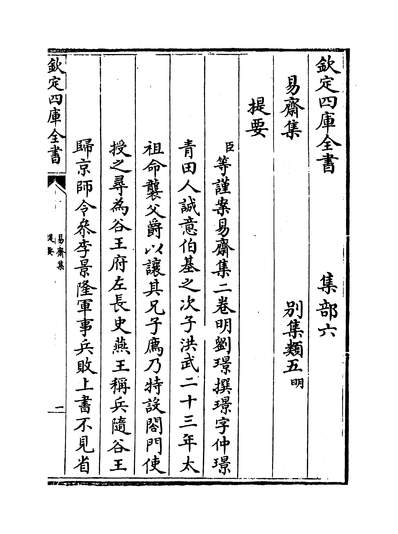 欽定四庫全書　集部六
易齋集　別集類五明
提要
臣等謹案易齋集二卷明劉璟撰璟字仲璟
青田人誠意伯基之次子洪武二十三年太
祖命襲父爵以讓其兄子廌乃特設閤門使
授之尋為谷王府左長史燕王稱兵隨谷王
歸京師令叅李景隆軍事兵敗上書不見省
欽定四庫全書
易齋集
提要
一